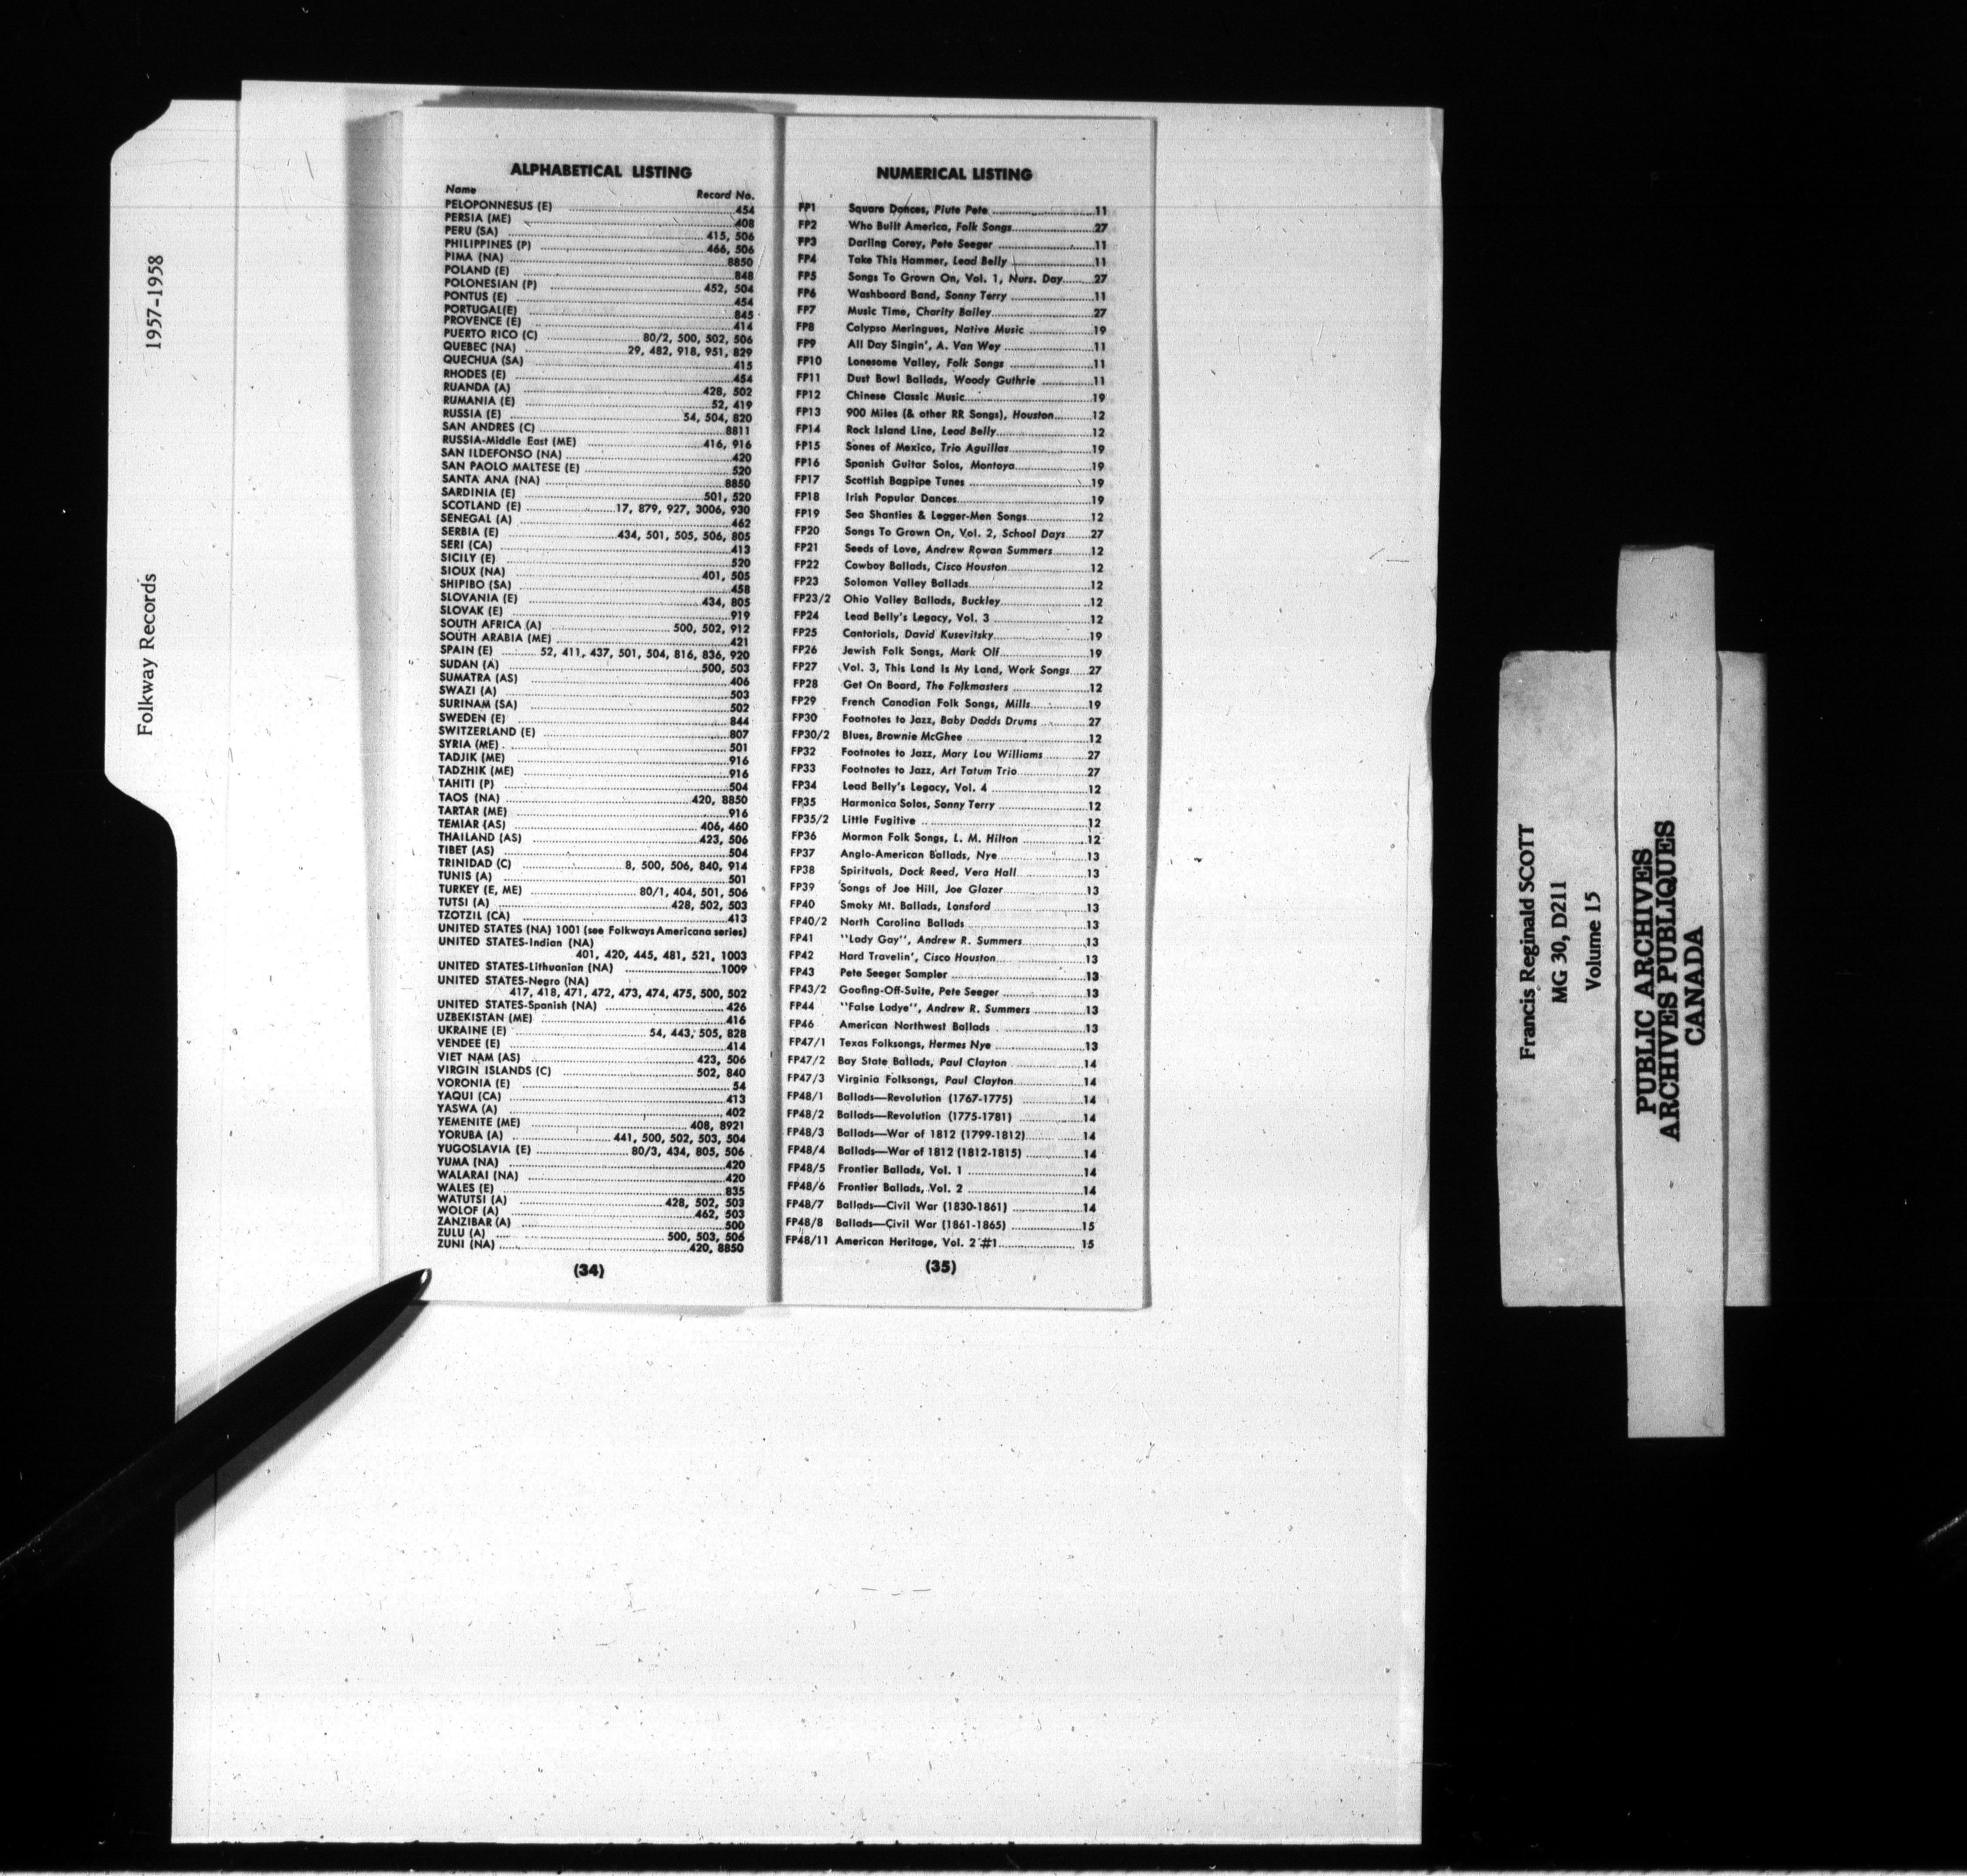 Folkway Records 1957-1958
ALPHABETICAL LISTING
Name Record No.
PELOPONNESUS (E) 454
PERSIA (ME) 408
PERU (SA) 415, 506
PHILIPPINES (P) 466, 506
PIMA (NA) 8850
POLAND (E) 848
POLONESIAN (P) 452, 504
PONTUS (E) 454
PORTUGAL(E) 845
PROVENCE (E) 414
PUERTO RICO (C) 80/2, 500, 502, 506
QUEBEC (NA) 29, 482, 918, 951, 829
QUECHUA (SA) 415
RHODES (E) 454
RUANDA (A) 428, 502
RUMANIA (E) 52, 419
RUSSIA (E) 54, 504, 820
SAN ANDRES (C) 8811
RUSSIA-Middle East (ME) 416, 916
SAN ILDEFONSO (NA) 420
SAN PAOLO MALTESE (E) 520
SANTA ANA (NA) 8850
SARDINIA (E) 501, 520
SCOTLAND (E) 17, 879, 927, 3006, 930
SENEGAL (A) 462
SERBIA (E) 434, 501, 505, 506, 805
SERI (CA) 413
SICILY (E) 520
SIOUX (NA) 401, 505
SHIPIBO (SA) 458
SLOVANIA (E) 434, 805
SLOVAK (E) 919
SOUTH AFRICA (A) 500, 502, 912
SOUTH ARABIA (ME) 421
SPAIN (E) 52, 411, 437, 501, 504, 816, 836, 920
SUDAN (A) 500, 503
SUMATRA (AS) 406
SWAZI (A) 503
SURINAM (SA) 502
SWEDEN (E) 844
SWITZERLAND (E) 807
SYRIA (ME) 501
TADJIK (ME) 916
TADZHIK (ME) 916
TAHITI (P) 504
TAOS (NA) 420, 8850
TARTAR (ME) 916
TEMIAR (AS) 406, 460
THAILAND (AS) 423, 506
TIBET (AS) 504
TRINIDAD (C) 8, 500, 506, 840, 914
TUNIS (A) 501
TURKEY (E, ME) 80/1, 404, 501, 506
TUTSI (A) 428, 502, 503
TZOTZIL (CA) 413
UNITED STATES (NA) 1001 (see Folkways Americana series)
UNITED STATES-Indian (NA)
401, 420, 445, 481, 521, 1003
UNITED STATES-Lithuanian (NA) 1009
UNITED STATES-Negro (NA)
417, 418, 471, 472, 473, 474, 475, 500, 502
UNITED STATES-Spanish (NA) 426
UZBEKISTAN (ME) 416
UKRAINE (E) 54, 443, 505, 828
VENDEE (E) 414
VIET NAM (AS) 423, 506
VIRGIN ISLANDS (C) 502, 840
VORONIA (E) 54
YAQUI (CA) 413
YASWA (A) 402
YEMENITE (ME) 408, 8921
YORUBA (A) 441, 500, 502, 503, 504
YUGOSLAVIA (E) 80/3, 434, 805, 506
YUMA (NA) 420
WALARAI (NA) 420
WALES (E) 835
WATUTSI (A) 428, 502, 503
WOLOF (A) 462, 503
ZANZIBAR (A) 500
ZULU (A) 500, 503, 506
ZUNI (NA) 420, 8850
(34)
NUMERICAL LISTING
FP1 Square Dances, Piute Pete 11
FP2 Who Built America, Folk Songs 27
FP3 Darling Corey, Pete Seeger 11
FP4 Take This Hammer, Lead Belly 11
FP5 Songs To Grown On, Vol. 1, Nurs. Day 27
FP6 Washboard Band, Sonny Terry 11
FP7 Music Time, Charity Bailey 27
FP8 Calypso Meringues, Native Music 19
FP9 All Day Singin', A. Van Wey 11
FP10 Lonesome Valley, Folk Songs 11
FP11 Dust Bowl Ballads, Woody Guthrie 11
FP12 Chinese Classic Music 19
FP13 900 Miles (& other RR Songs), Houston 12
FP14 Rock Island Line, Lead Belly 12
FP15 Sones of Mexico, Trio Aguillas 19
FP16 Spanish Guitar Solos, Montoya 19
FP17 Scottish Bagpipe Tunes 19
FP18 Irish Popular Dances 19
FP19 Sea Shanties & Legger-Men Songs 12
FP20 Songs To Grown On, Vol. 2, School Days 27
FP21 Seeds of Love, Andrew Rowan Summers 12
FP22 Cowboy Ballads, Cisco Houston 12
FP23 Solomon Valley Ballads 12
FP23/2 Ohio Valley Ballads, Buckley 12
FP24 Lead Belly's Legacy, Vol. 3 12
FP25 Cantorials, David Kusevitsky 19
FP26 Jewish Folk Songs, Mark Olf 19
FP27 Vol. 3, This Land Is My Land, Work Songs 27
FP28 Get On Board, The Folkmasters 12
FP29 French Canadian Folk Songs, Mills 19
FP30 Footnotes to Jazz, Baby Dodds Drums 27
FP30/2 Blues, Brownie McGhee 12
FP32 Footnotes to Jazz, Mary Lou Williams 27
FP33 Footnotes to Jazz, Art Tatum Trio 27
FP34 Lead Belly's Legacy, Vol. 4 12
FP35 Harmonica Solos, Sonny Terry 12
FP35/2 Little Fugitive 12
FP36 Mormon Folk Songs, L. M. Hilton 12
FP37 Anglo-American Ballads, Nye 13
FP38 Spirituals, Dock Reed, Vera Hall 13
FP39 Songs of Joe Hill, Joe Glazer 13
FP40 Smoky Mt. Ballads, Lansford 13
FP40/2 North Carolina Ballads 13
FP41 "Lady Gay", Andrew R. Summers 13
FP42 Hard Travelin', Cisco Houston 13
FP43 Pete Seeger Sampler 13
FP43/2 Goofing-Off-Suite, Pete Seeger 13
FP44 "False Ladye", Andrew R. Summers 13
FP46 American Northwest Ballads 13
FP47/1 Texas Folksongs, Hermes Nye 13
FP47/2 Bay State Ballads, Paul Clayton 14
FP47/3 Virginia Folksongs, Paul Clayton 14
FP48/1 Ballads—Revolution (1767-1775) 14
FP48/2 Ballads—Revolution (1775-1781) 14
FP48/3 Ballads—War of 1812 (1799-1812) 14
FP48/4 Ballads—War of 1812 (1812-1815) 14
FP48/5 Frontier Ballads, Vol. 1 14
FP48/6 Frontier Ballads, Vol. 2 14
FP48/7 Ballads—Civil War (1830-1861) 14
FP48/8 Ballads—Civil War (1861-1865) 15
FP48/11 American Heritage, Vol. 2 #1 15
(35)
Francis Reginald SCOTT
MG 30, D211
Volume 15
PUBLIC ARCHIVES
ARCHIVES PUBLIQUES
CANADA